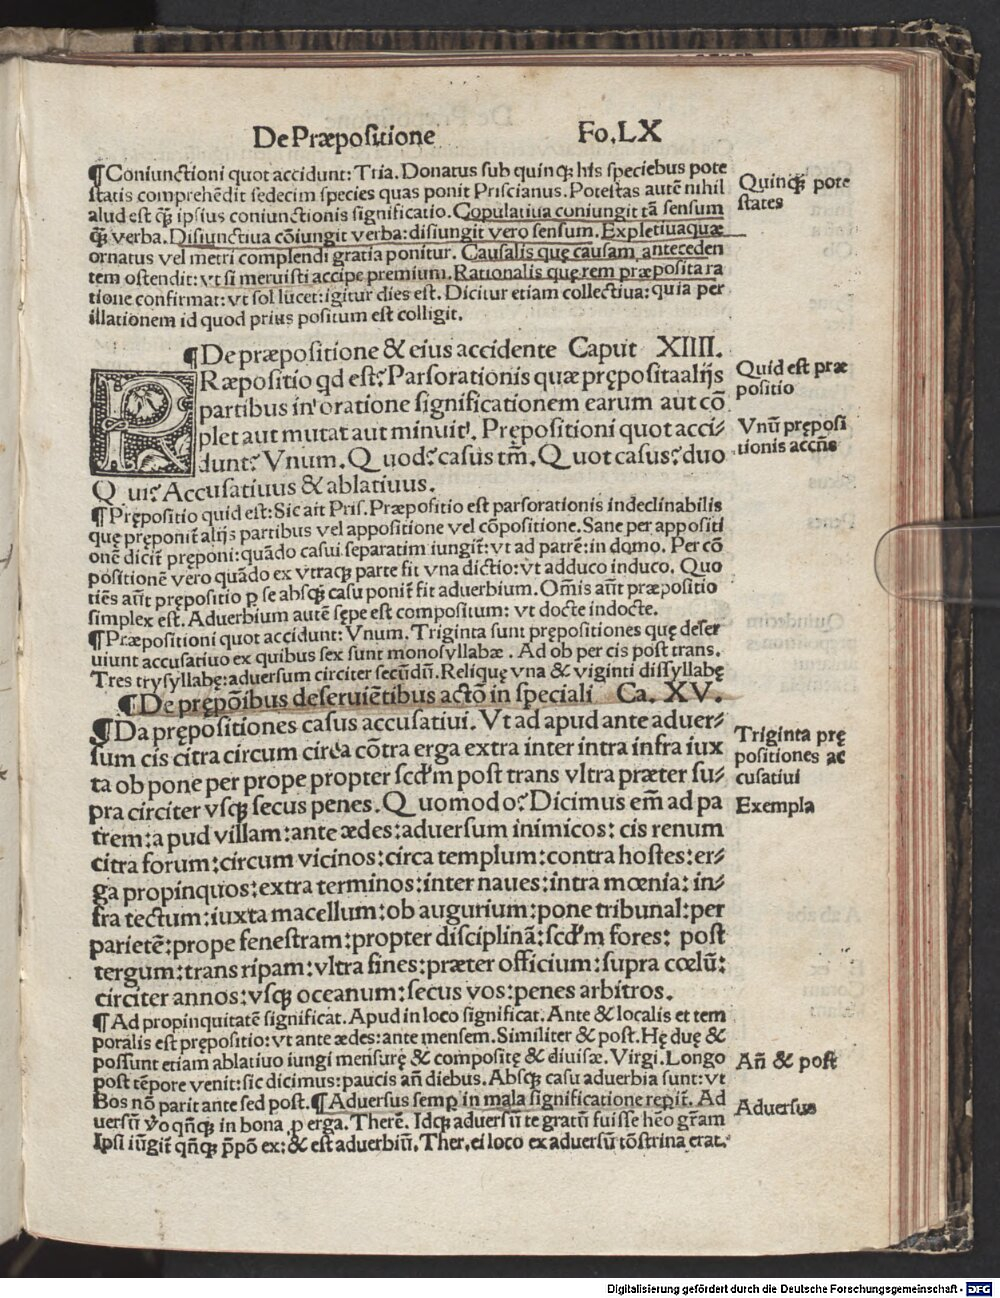 De Præpositione
Fo.LX
¶Coniunctioni quot accidunt: Tria. Donatus sub quinqꝫ his speciebus pote
statis comprehēdit sedecim species quas ponit Priscianus. Potestas autē nihil
alud est qꝫ̄ ipsius coniunctionis significatio. Copulatiua coniungit tā sensum
qꝫ̄ verba. Disiunctiua cōiungit verba: disiungit vero sensum. Expletiuaquæ
ornatus vel metri complendi gratia ponitur. Causalis quę causam anteceden
tem ostendit: vt si meruisti accipe premium. Rationalis quę rem præposita ra
tione confirmat: vt sol lucet: igitur dies est. Dicitur etiam collectiua: quia per
illationem id quod prius positum est colligit.
Quinqꝫ pote
states
¶De præpositione & eius accidente Caput XIIII.
PRæpositio qd est? Pars orationis quæ pręposita alijs
partibus in oratione significationem earum aut cō
plet aut mutat aut minuit. Prępositioni quot acci/
dunt? Vnum. Quod? casus tm̄. Quot casus? duo
Qui? Accusatiuus & ablatiuus.
Quid est præ
positio
Vnū pręposi
tionis accn̄s
¶Prępositio quid est: Sic ait Pris. Præpositio est pars orationis indeclinabilis
quę pręponit̄ alijs partibus vel appositione vel cōpositione. Sane per appositi
onē dicit̄ pręponi: quādo casui separatim iungit̄: vt ad patrē: in domo. Per cō
positionē vero quādo ex vtraqꝫ parte fit vna dictio: vt adduco induco. Quo
tiēs aūt prępositio p se absqꝫ casu ponit̄ fit aduerbium. Om̄is aūt præpositio
simplex est. Aduerbium autē sępe est compositum: vt docte indocte.
¶Præpositioni quot accidunt: Vnum. Triginta sunt prepositiones quę deser
uiunt accusatiuo ex quibus sex sunt monosyllabæ. Ad ob per cis post trans.
Tres trysyllabę: aduersum circiter secūdū. Reliquę vna & viginti dissyllabę
¶De prępōibus deseruiētibus actō in speciali Ca. XV.
¶Da prępositiones casus accusatiui. Vt ad apud ante aduer/
sum cis citra circum circa cōtra erga extra inter intra infra iux
ta ob pone per prope propter scd'm post trans vltra præter su/
pra circiter vsqꝫ secus penes. Quomodo? Dicimus em̄ ad pa
trem: apud villam: ante ædes: aduersum inimicos: cis renum
citra forum: circum vicinos: circa templum: contra hostes: er/
ga propinquos: extra terminos: inter naues: intra mœnia: in/
fra tectum: iuxta macellum: ob augurium: pone tribunal: per
parietē: prope fenestram: propter disciplinā: scd'm fores: post
tergum: trans ripam: vltra fines: præter officium: supra cœlū:
circiter annos: vsqꝫ oceanum: secus vos: penes arbitros.
Triginta prę
positiones ac
cusatiui
Exempla
¶Ad propinquitatē significat. Apud in loco significat. Ante & localis et tem
poralis est prepositio: vt ante ædes: ante mensem. Similiter & post. Hę duę &
possunt etiam ablatiuo iungi mensurę & compositę & diuisæ. Virgi. Longo
post tēpore venit: sic dicimus: paucis añ diebus. Absqꝫ casu aduerbia sunt: vt
Bos nō parit ante sed post. ¶Aduersus semp in mala significatione repit̄. Ad
uersū vo qn̄qꝫ in bona p erga. Therē. Idqꝫ aduersū te gratū fuisse heo gr̄am
Ipsi iūgit̄ qn̄qꝫ p̄pō ex: & est aduerbiū. Ther. ei loco ex aduersū tōstrina erat.
Añ & post
Aduersus
Digitalisierung gefördert durch die Deutsche Forschungsgemeinschaft - DFG